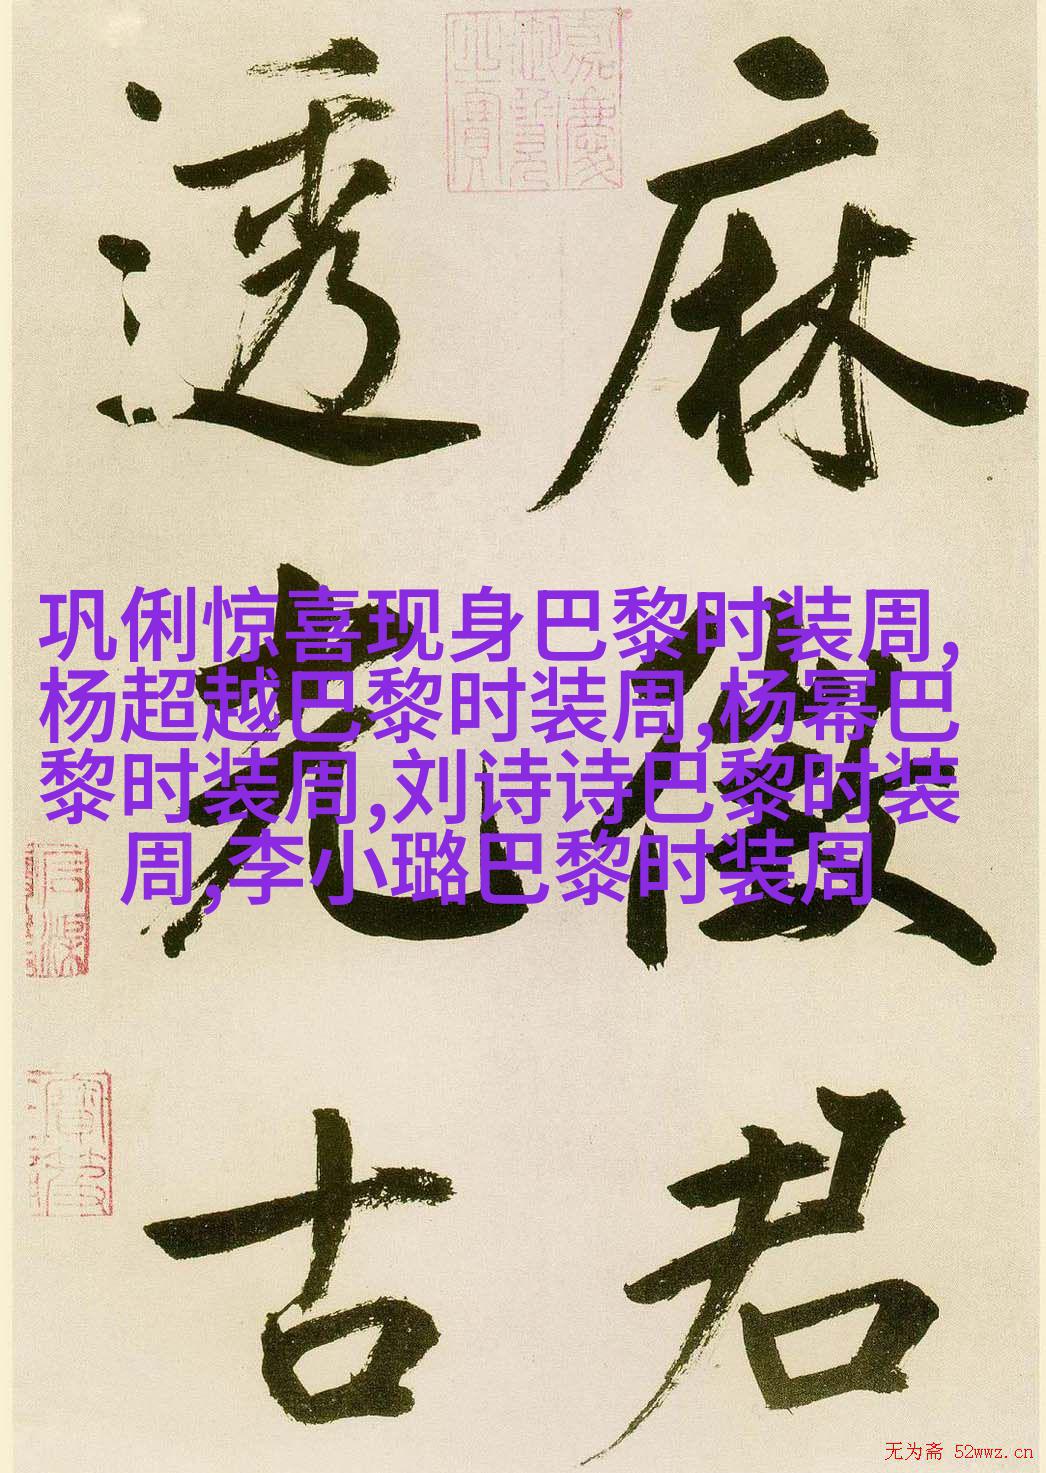 巩俐惊喜现身巴黎时装周,
杨超越巴黎时装周,杨幂巴
黎时装周,刘诗诗巴黎时装
周,李小璐巴黎时装周
麻
君
透
光
古
嘉慶
无为斋 52wwz.cn